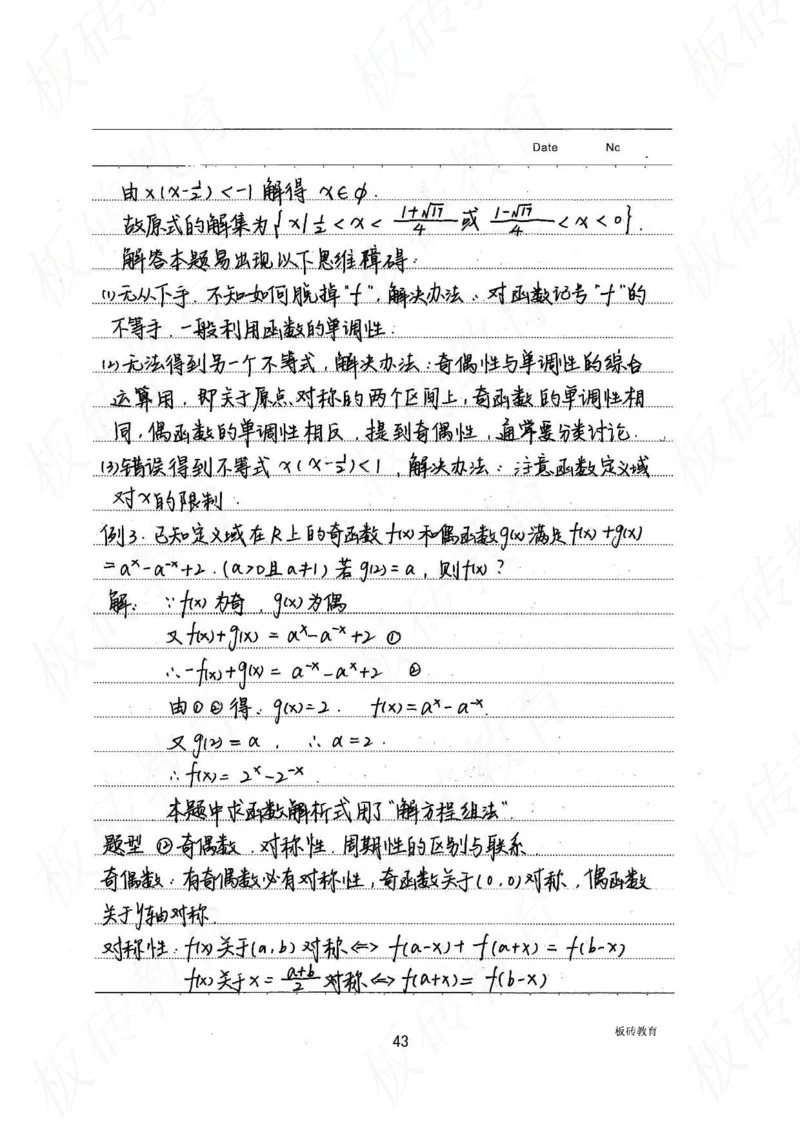 Date No
由x(x-½)<-1解得 x∈φ.
故原式的解集为{x|½<x<(1+√17)/4 或 (1-√17)/4<x<0}.
解答本题易出现以下思维障碍:
(1)无从下手.不知如何脱掉"f",解决办法:对函数记号"f"的
不等手.一般利用函数的单调性.
(2)无法得到另一个不等式,解决办法:奇偶性与单调性的综合
运算用,即关于原点对称的两个区间上,奇函数的单调性相
同,偶函数的单调性相反,提到奇偶性,通常要分类讨论.
(3)错误得到不等式x(x-½)<1,解决办法:注意函数定义域
对x的限制.
例3.已知定义域在R上的奇函数f(x)和偶函数g(x)满足f(x)+g(x)
=aˣ-a⁻ˣ+2.(a>0且a≠1)若g(2)=a,则f(x)?
解: ∵f(x)为奇,g(x)为偶
又f(x)+g(x)=aˣ-a⁻ˣ+2 ①
∴-f(x)+g(x)=a⁻ˣ-aˣ+2 ②
由①②得:g(x)=2. f(x)=aˣ-a⁻ˣ.
又g(2)=a, ∴a=2.
∴f(x)=2ˣ-2⁻ˣ.
本题中求函数解析式用了"解方程组法".
题型②奇偶数.对称性.周期性的区别与联系.
奇偶数:有奇偶数必有对称性,奇函数关于(0,0)对称,偶函数
关于y轴对称.
对称性:f(x)关于(a,b)对称⇔f(a-x)+f(a+x)=f(b-x)
f(x)关于x=(a+b)/2对称⇔f(a+x)=f(b-x)
板砖教育
43